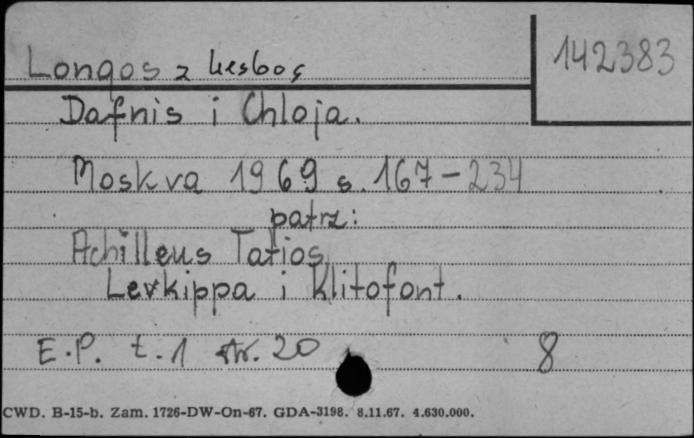 142383
Longos z Lesbos
Dafnis i Chloja.
Moskva 1969 s. 167-234
patrz:
Achilleus Tatios
Levkippa i Klitofont.
E.P. t. 1 str. 20 8
CWD. B-15-b. Zam. 1726-DW-On-67. GDA-3198. 8.11.67. 4.630.000.